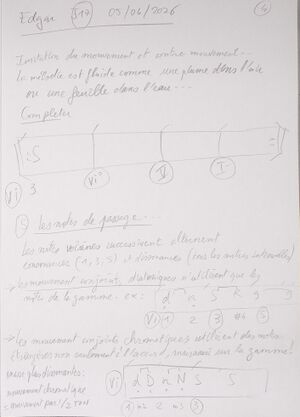 Edgar 517 05/04/2026
4
Imitation du mouvement et contre mouvement...
La mélodie est fluide comme une plume dans l'air
ou une feuille dans l'eau...
Completer
:S vi° V I :
vi 3
5 Les notes de passage...
Les notes voisines successives alternent
consonances (1, 3, 5) et dissonances (tous les autres intervalles)
→ Les mouvement conjoint, diatoniques n'utilisent que les
notes de la gamme. ex: d n S
vi 1 2 3 5
→ Les mouvement conjoints chromatiques utilisent des notes
étrangères non seulement à l'accord, mais aussi sur la gamme!
plus dissonantes:
mouvement chromatique
= mouvement par 1/2 ton
vi d D n N S S
2 3